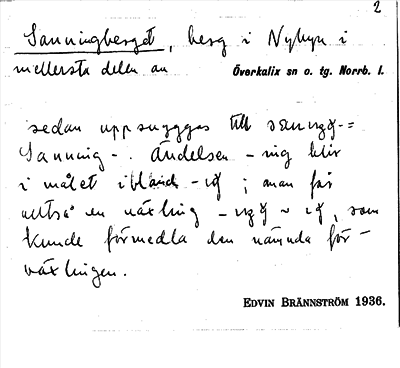 2
Sanningberget, berg i Nybyn i
mellersta delen av Överkalix sn o. tg. Norrb. l.
sedan uppsnyggas till
Sanning-. Ändelsen -ing blir
i målet ibland ; man får
alltså en växling ~ , som
kunde förmedla den nämnda för-
växlingen.
EDVIN BRÄNNSTRÖM 1936.